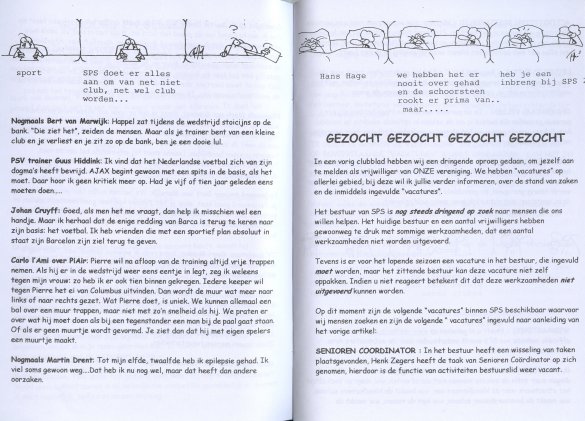 sport
SPS doet er alles
aan om van net niet
club, net wel club
worden...
Nogmaals Bert van Marwijk: Happel zat tijdens de wedstrijd stoicijns op de
bank. "Die ziet het", zeiden de mensen. Maar als je trainer bent van een kleine
club en je verliest en je zit zo op de bank, ben je een dooie lul.
PSV trainer Guus Hiddink: Ik vind dat het Nederlandse voetbal zich van zijn
dogma's heeft bevrijd. AJAX begint gewoon met een spits in de basis, als het
moet. Daar hoor ik geen kritiek meer op. Had je vijf of tien jaar geleden eens
moeten doen....
Johan Cruyff: Goed, als men het me vraagt, dan help ik misschien wel een
handje. Maar ik herhaal dat de enige redding van Barca is terug te keren naar
zijn basis: het voetbal. Ik heb vrienden die met een sportief plan absoluut in
staat zijn Barcelon zijn ziel terug te geven.
Carlo l'Ami over PiAir: Pierre wil na afloop van de training altijd vrije trappen
nemen. Als hij er in de wedstrijd weer eens eentje in legt, zeg ik weleens
tegen mijn vrouw: zo heb ik er ook tien binnen gekregen. Iedere keeper wil
tegen Pierre het ei van Columbus uitvinden. Dan wordt de muur wat meer naar
links of naar rechts gezet. Wat Pierre doet, is uniek. We kunnen allemaal een
bal over een muur trappen, maar niet met zo'n snelheid als hij. We praten er
over wat hij moet doen als bij een tegenstander een man bij de paal gaat staan.
Of als er geen muurtje wordt gevormd. Je ziet dan dat hij met eigen spelers
een muurtje maakt.
Nogmaals Martin Drent: Tot mijn elfde, twaalfde heb ik epilepsie gehad. Ik
viel soms gewoon weg...Dat heb ik nu nog wel, maar dat heeft dan andere
oorzaken.
Hans Hage
we hebben het er
nooit over gehad
en de schoorsteen
rookt er prima van..
maar.....
heb je een
inbreng bij SPS
GEZOCHT GEZOCHT GEZOCHT GEZOCHT
In een vorig clubblad hebben wij een dringende oproep gedaan, om jezelf aan
te melden als vrijwilliger van ONZE vereniging. We hebben "vacatures" op
allerlei gebied, bij deze wil ik jullie verder informeren, over de stand van zaken
en de inmiddels ingevulde "vacatures".
Het bestuur van SPS is nog steeds dringend op zoek naar mensen die ons
willen helpen. Het huidige bestuur en een aantal vrijwilligers hebben
gewoonweg te druk met sommige werkzaamheden, dat een aantal
werkzaamheden niet worden uitgevoerd.
Tevens is er voor het lopende seizoen een vacature in het bestuur, die ingevuld
moet worden, maar het zittende bestuur kan deze vacature niet zelf
oppakken. Indien u niet reageert betekent dit dat deze werkzaamheden niet
uitgevoerd kunnen worden.
Op dit moment zijn de volgende "vacatures" binnen SPS beschikbaar waarvoor
wij mensen zoeken en zijn de volgende " vacatures" ingevuld naar aanleiding van
het vorige artikel:
SENIOREN COORDINATOR : In het bestuur heeft een wisseling van taken
plaatsgevonden, Henk Zegers heeft de taak van Senioren Coördinator op zich
genomen, hierdoor is de functie van activiteiten bestuurslid weer vacant.